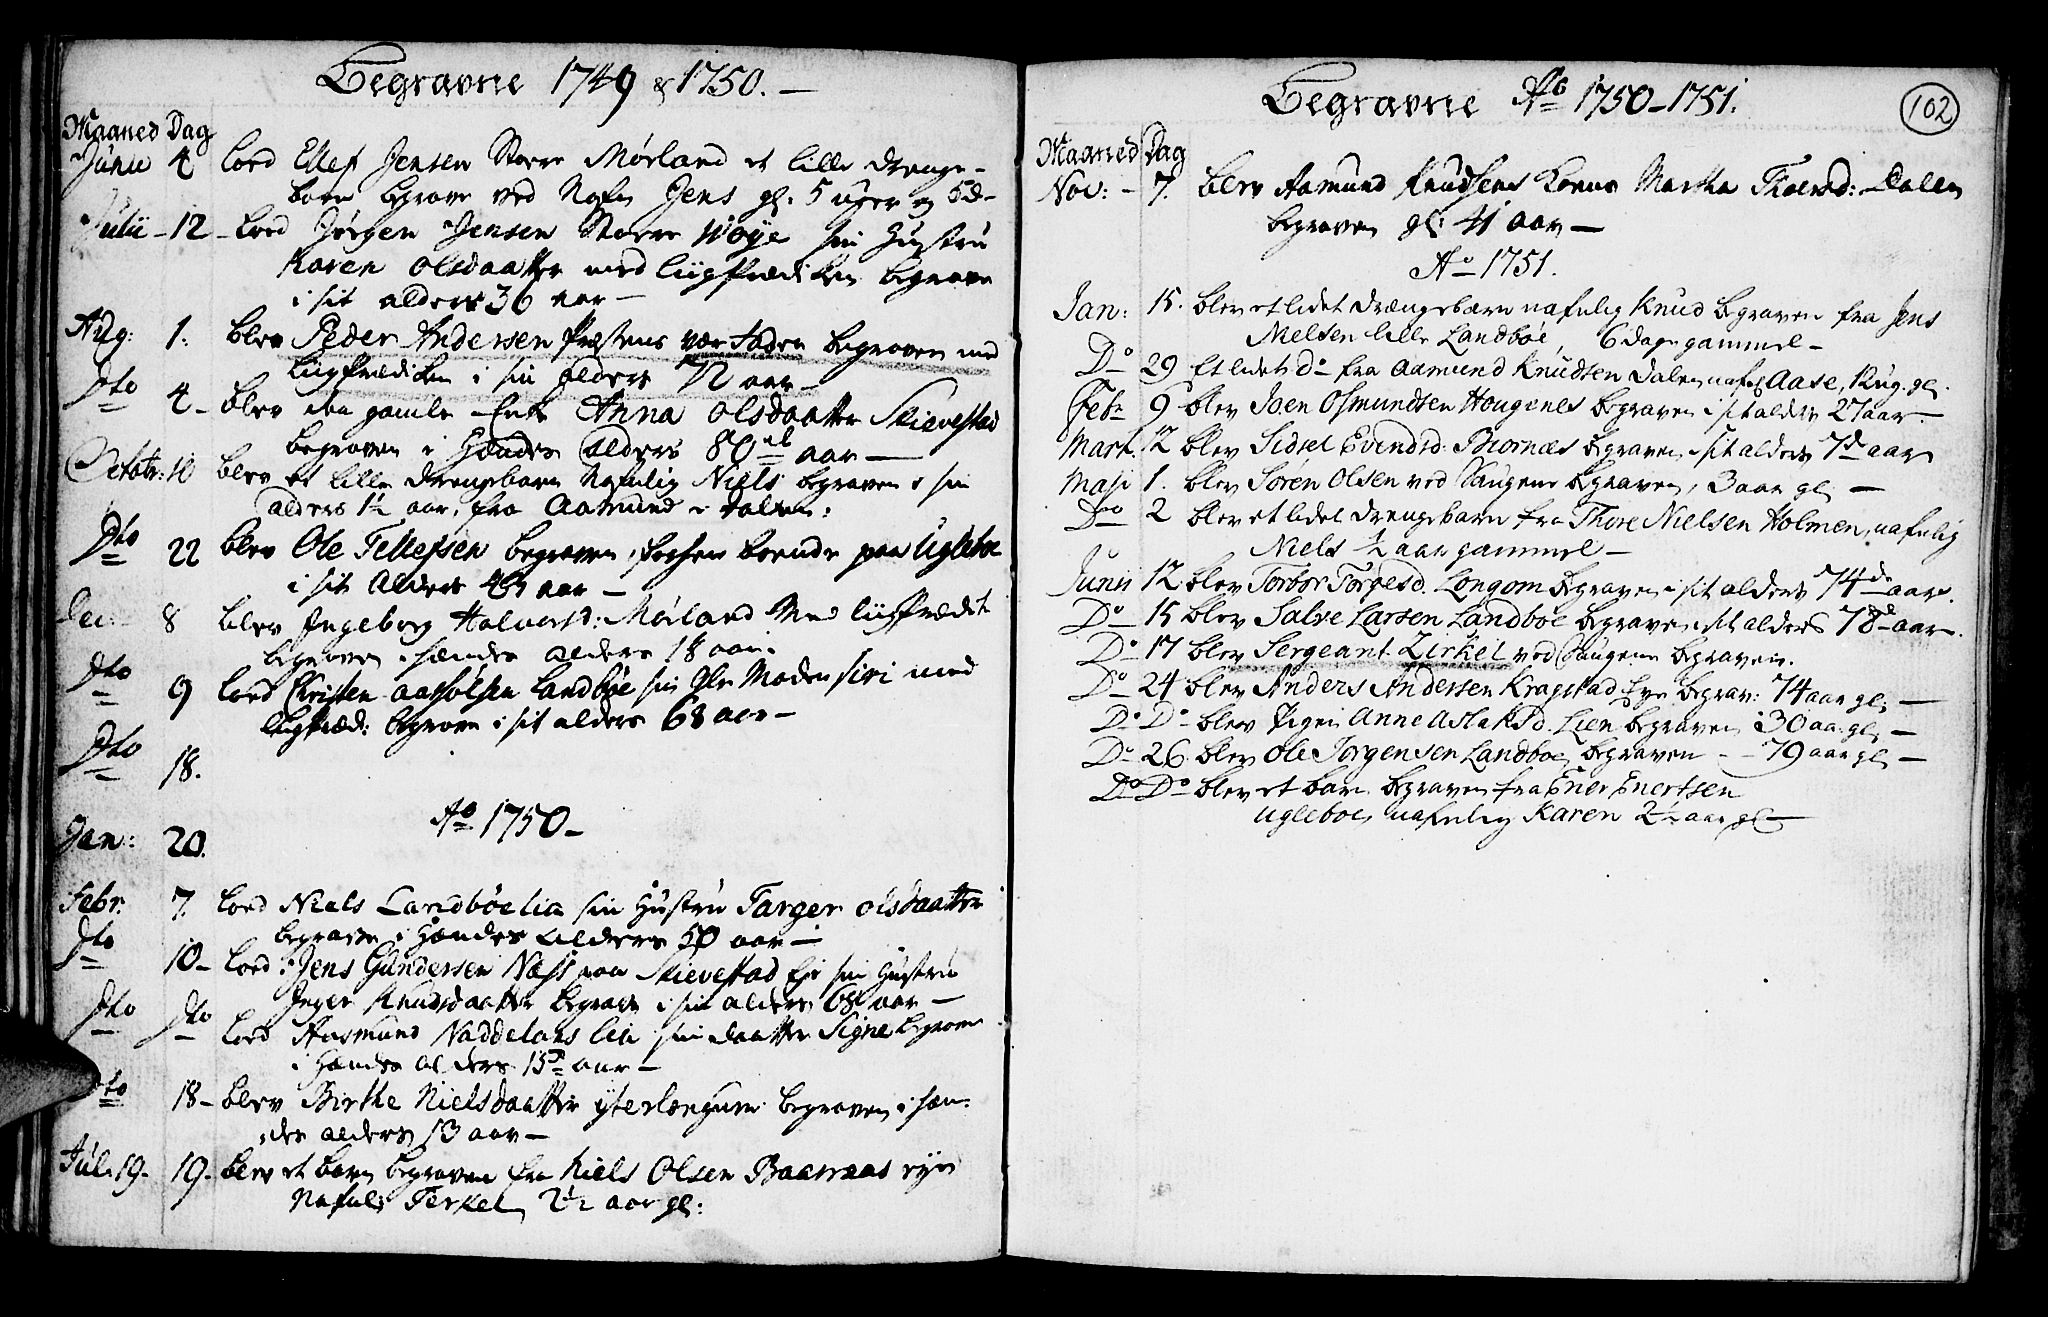 Begravne 1749 & 1750. —
Maaned Dag
Junii 4 lod Ellef Jensen Store Mørland et lille drenge-
barn begrave ved Nafn Jens gl. 5 uger og 5 d-
Julii - 12 - lod Jørgen Jensen Store Høÿe sin Hustru
Karen Olsdaatter med Liigprædiken begrave
i sit alders 36 aar —
Aug: 1. blev Peder Andersen Præstens værfader begraven med
Liigprædiken i sin alders 72 aar —
Dto 4 - blev den gamle Enke Anna Olsdaatter Skievestad
begraven i Hendes alders 80 aar —
Octobr: 10 blev et lille drengebarn Nafnlig Niels begraven i sin
alders 1½ aar, fra Aamund i Dalen.
Dto 22 blev Ole Tellefsen begraven, boende paa Ugleboe
i sit Alders aar —
Dec: 8 blev Ingeborg Halvorsd: Mørland Med Liigprædik
begraven i hændes alders 18 aar.
Dto 9 lod Christen Aasolsen Landbøe sin Moder Siri med
Liigpræd: begrave i sit alders 68 aar —
Dto 18.
Ao 1750 —
Jan: 20.
Febr. 7. lod Niels Landbøelia sin Hustru Targer Olsdaatter
begrave i Hændes alders 50 aar —
Dto 10 - lod Jens Gundersen Næss paa Skievestad Eje sin Hustru
Inger Knudsdaatter begrave i sin alders 68 aar —
Dto Dto lod Aasmund Naddelans lia sin daatter Signe begrave
i Hændes alders 15 aar —
Dto 18 - blev Birthe Nielsdaatter ÿterlangum begraven i hæn-
des alders 13 aar —
Jul. 19 - 19 - blev et barn begraven fra Niels Olsen Baasraas eÿe
Nafnl: Terkel 2½ aar gl:
Begravne Ao 1750 - 1751.
102
Maaned Dag
Nov: - 7. blev Aamund Knudsens Kone Martha Thoersd: Dalen
begraven gl. 41 aar —
Ao 1751.
Jan: 15. blev et lidet drængebarn nafnlig Knud begraven fra Jens
Nielsen lille Landbøe, 6 dage gammel —
Do 29 Et lidet Do fra Aamund Knudsen Dalen nafnl Aase, 12 ug. gl.
Febr 9 blev Joen Osmundsen Hougenes begraven i sit alders 27 aar —
Mart. 12 blev Sidsel Evendsd. Biornæs begraven i sit alders 7d aar
Maji 1. blev Søren Olsen ved Saugene begraven, 3 aar gl —
Do 2 blev et lidet drengebarn fra Thore Nielsen Holmen, nafnlig
Niels ½ aar gammel —
Junii 12 blev Torbor Torgesd. Longom begraven i sit alders 74de aar.
Do 15 blev Salve Larsen Landboe begraven i sit alders 78d aar.
Do 17 blev Sergeant Zirkel ved Saugene begraven.
Do 24 blev Anders Andersen Kragstad Eye begrav: 74 aar gl —
Do Do blev Pigen Anne Aslaksd. Lien begraven 30 aa. gl —
Do 26 blev Ole Jorgensen Landboe begraven - - 79 aar gl —
Do Do blev et barn begraven fra Ener Enertsen
Ugleboe, nafnlig Karen 2½ aar gl —